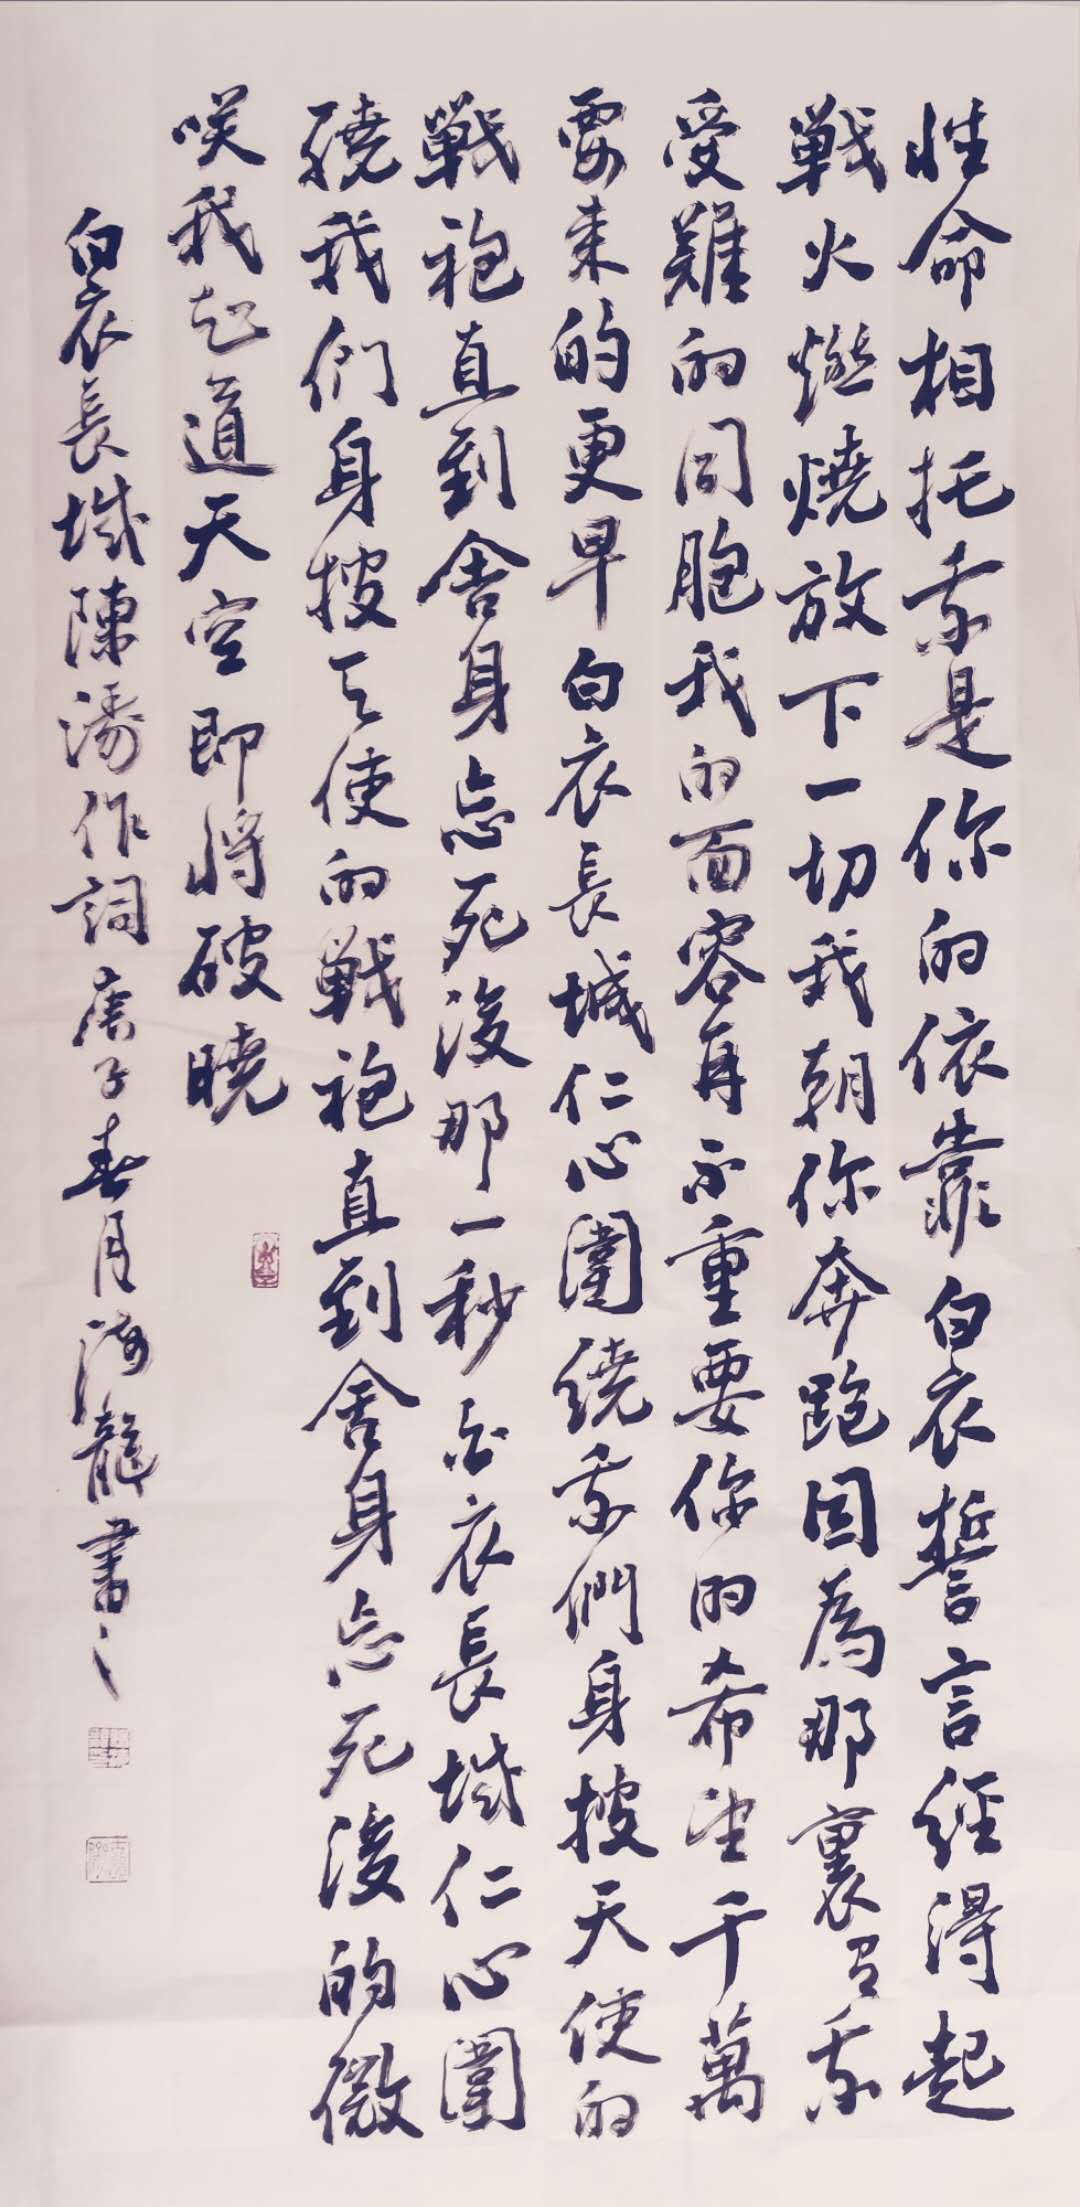 性命相托我是你的依靠白衣誓言經得起
戰火燃燒放下一切我朝你奔跑因為那裏有我
受難的同胞我的面容再不重要你的希望千萬
要來的更早白衣長城仁心圍繞我們身披天使的
戰袍直到舍身忘死後那一秒白衣長城仁心圍
繞我們身披天使的戰袍直到舍身忘死後的微
笑我知道天空即將破曉
白衣長城陳濤作詞庚子春月海龍書